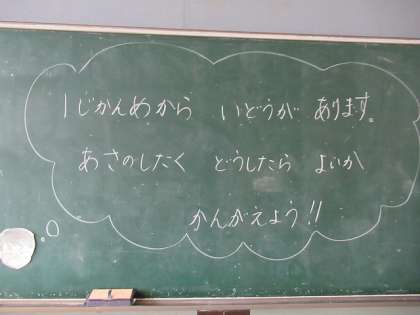 1じかんめから いどうが あります。
あさのしたく どうしたら よいか
かんがえよう!!